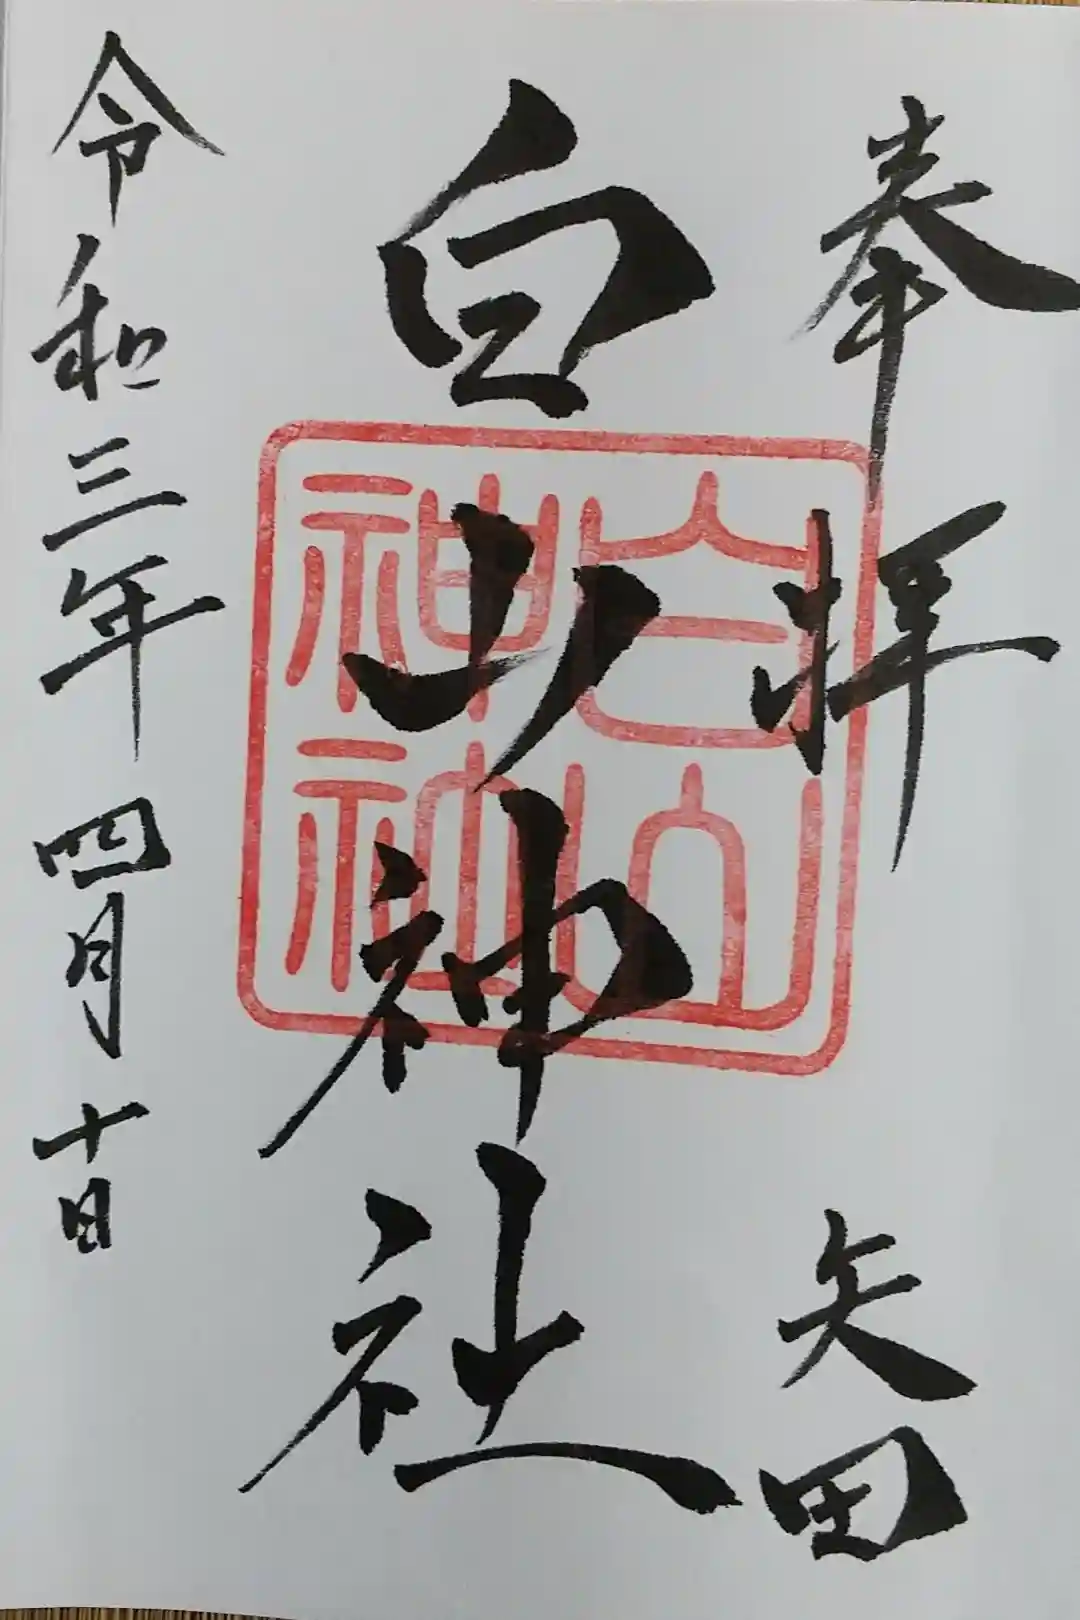 奉拝
矢田
白山神社
白山神社
令和三年四月十日